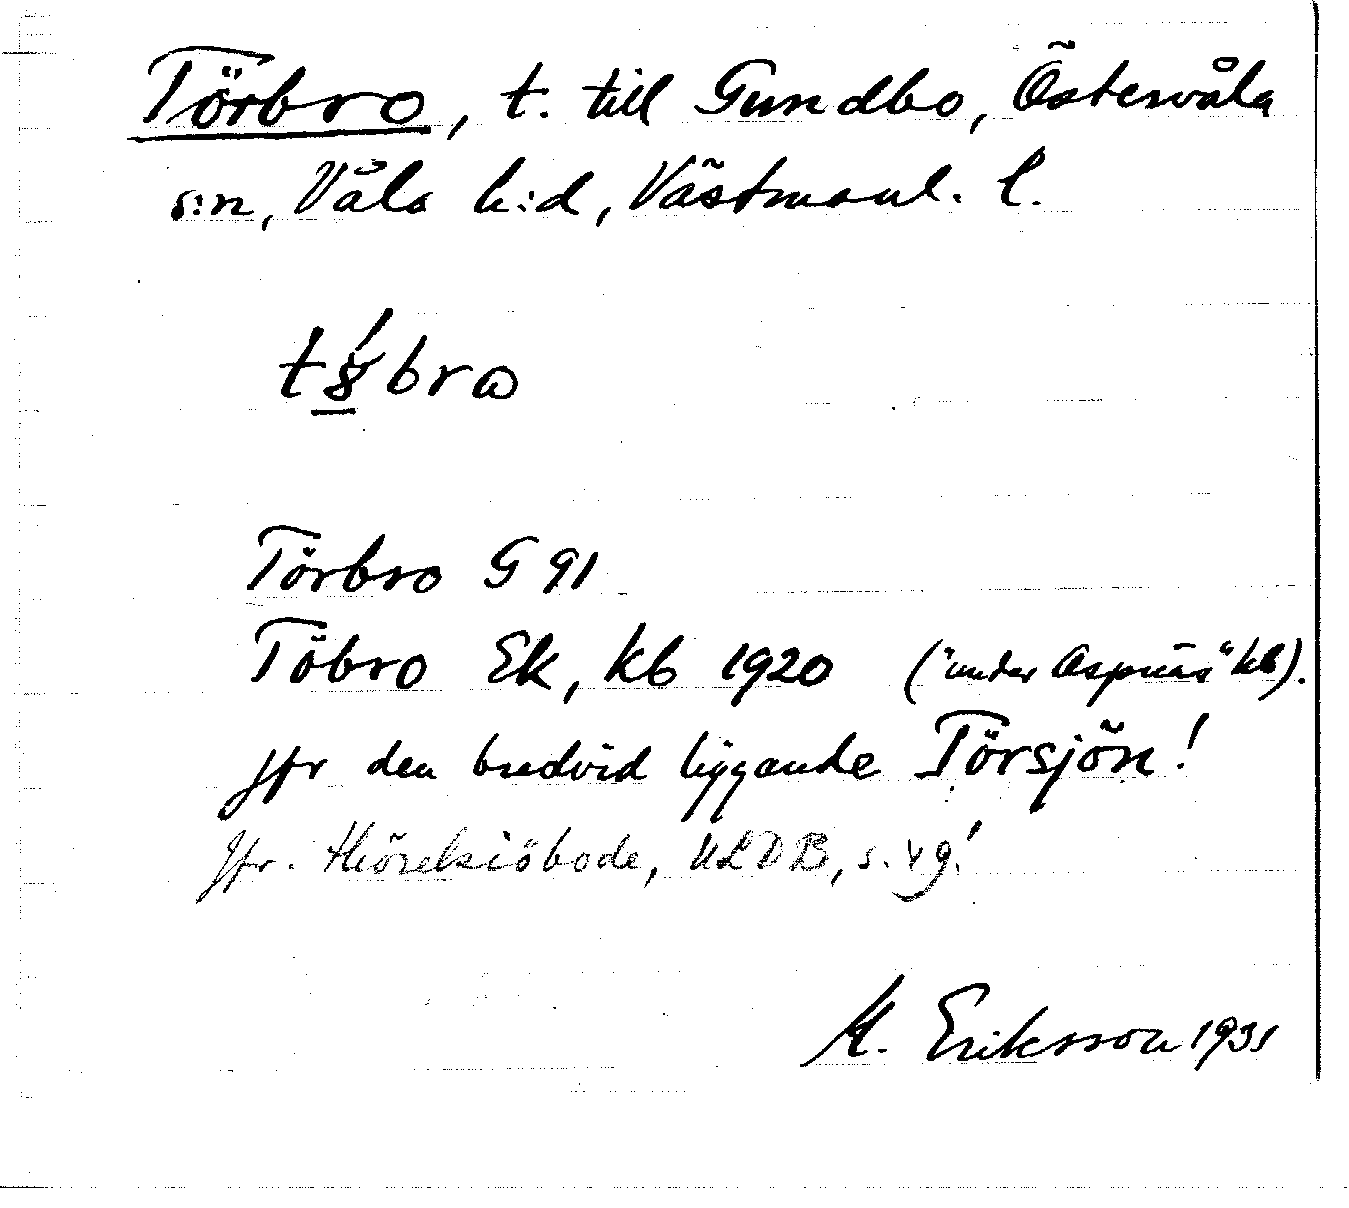 Törbro, t. till Gundbo, Östervåla
s:n, Våla h:d, Västmanl. l.
Törbro G 91
Töbro Ek, kb 1920 ("under Aspnäs" kb).
Jfr den bredvid liggande Törsjön!
Jfr. Thörelsiöbode, ULDB, s. 49!
M. Eriksson 1931